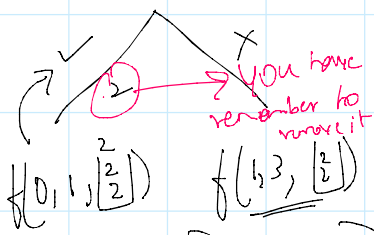 2
You have
remember to
remove it
f(0, 1, [2 2 2])
f(1, 3, [2 2])